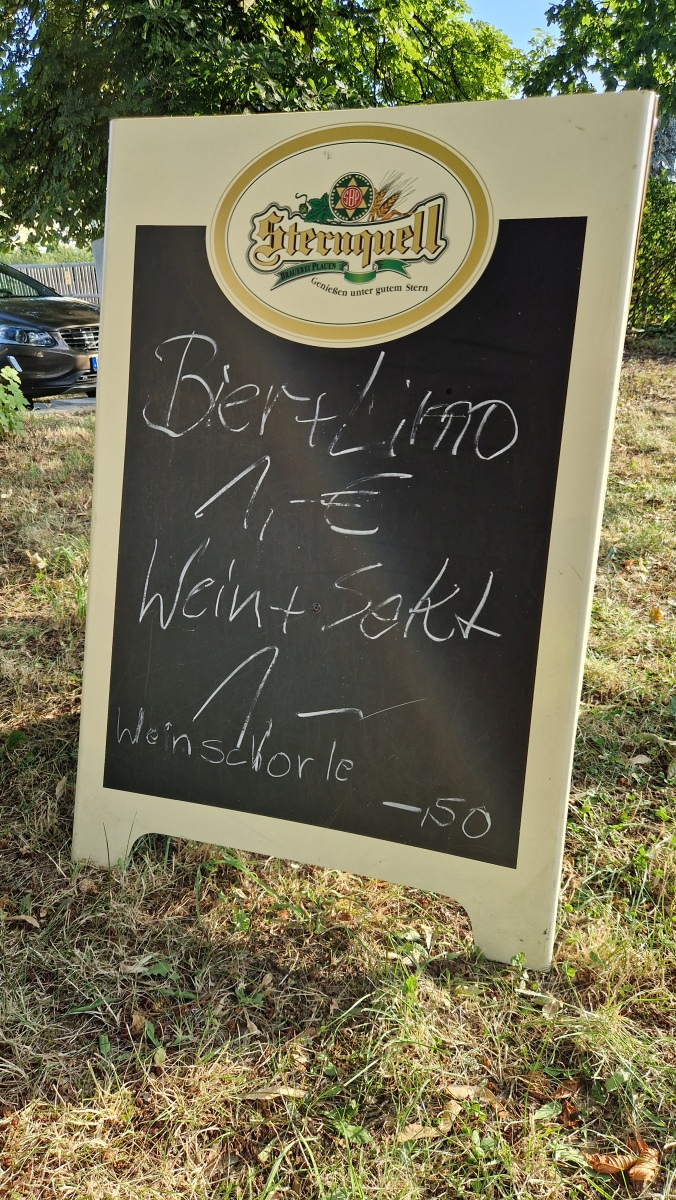 SBP
Sternquell
BRAUEREI PLAUEN
Genießen unter gutem Stern
Bier + Limo
1,-€
Wein + Sekt
1 —
Weinschorle
-,50